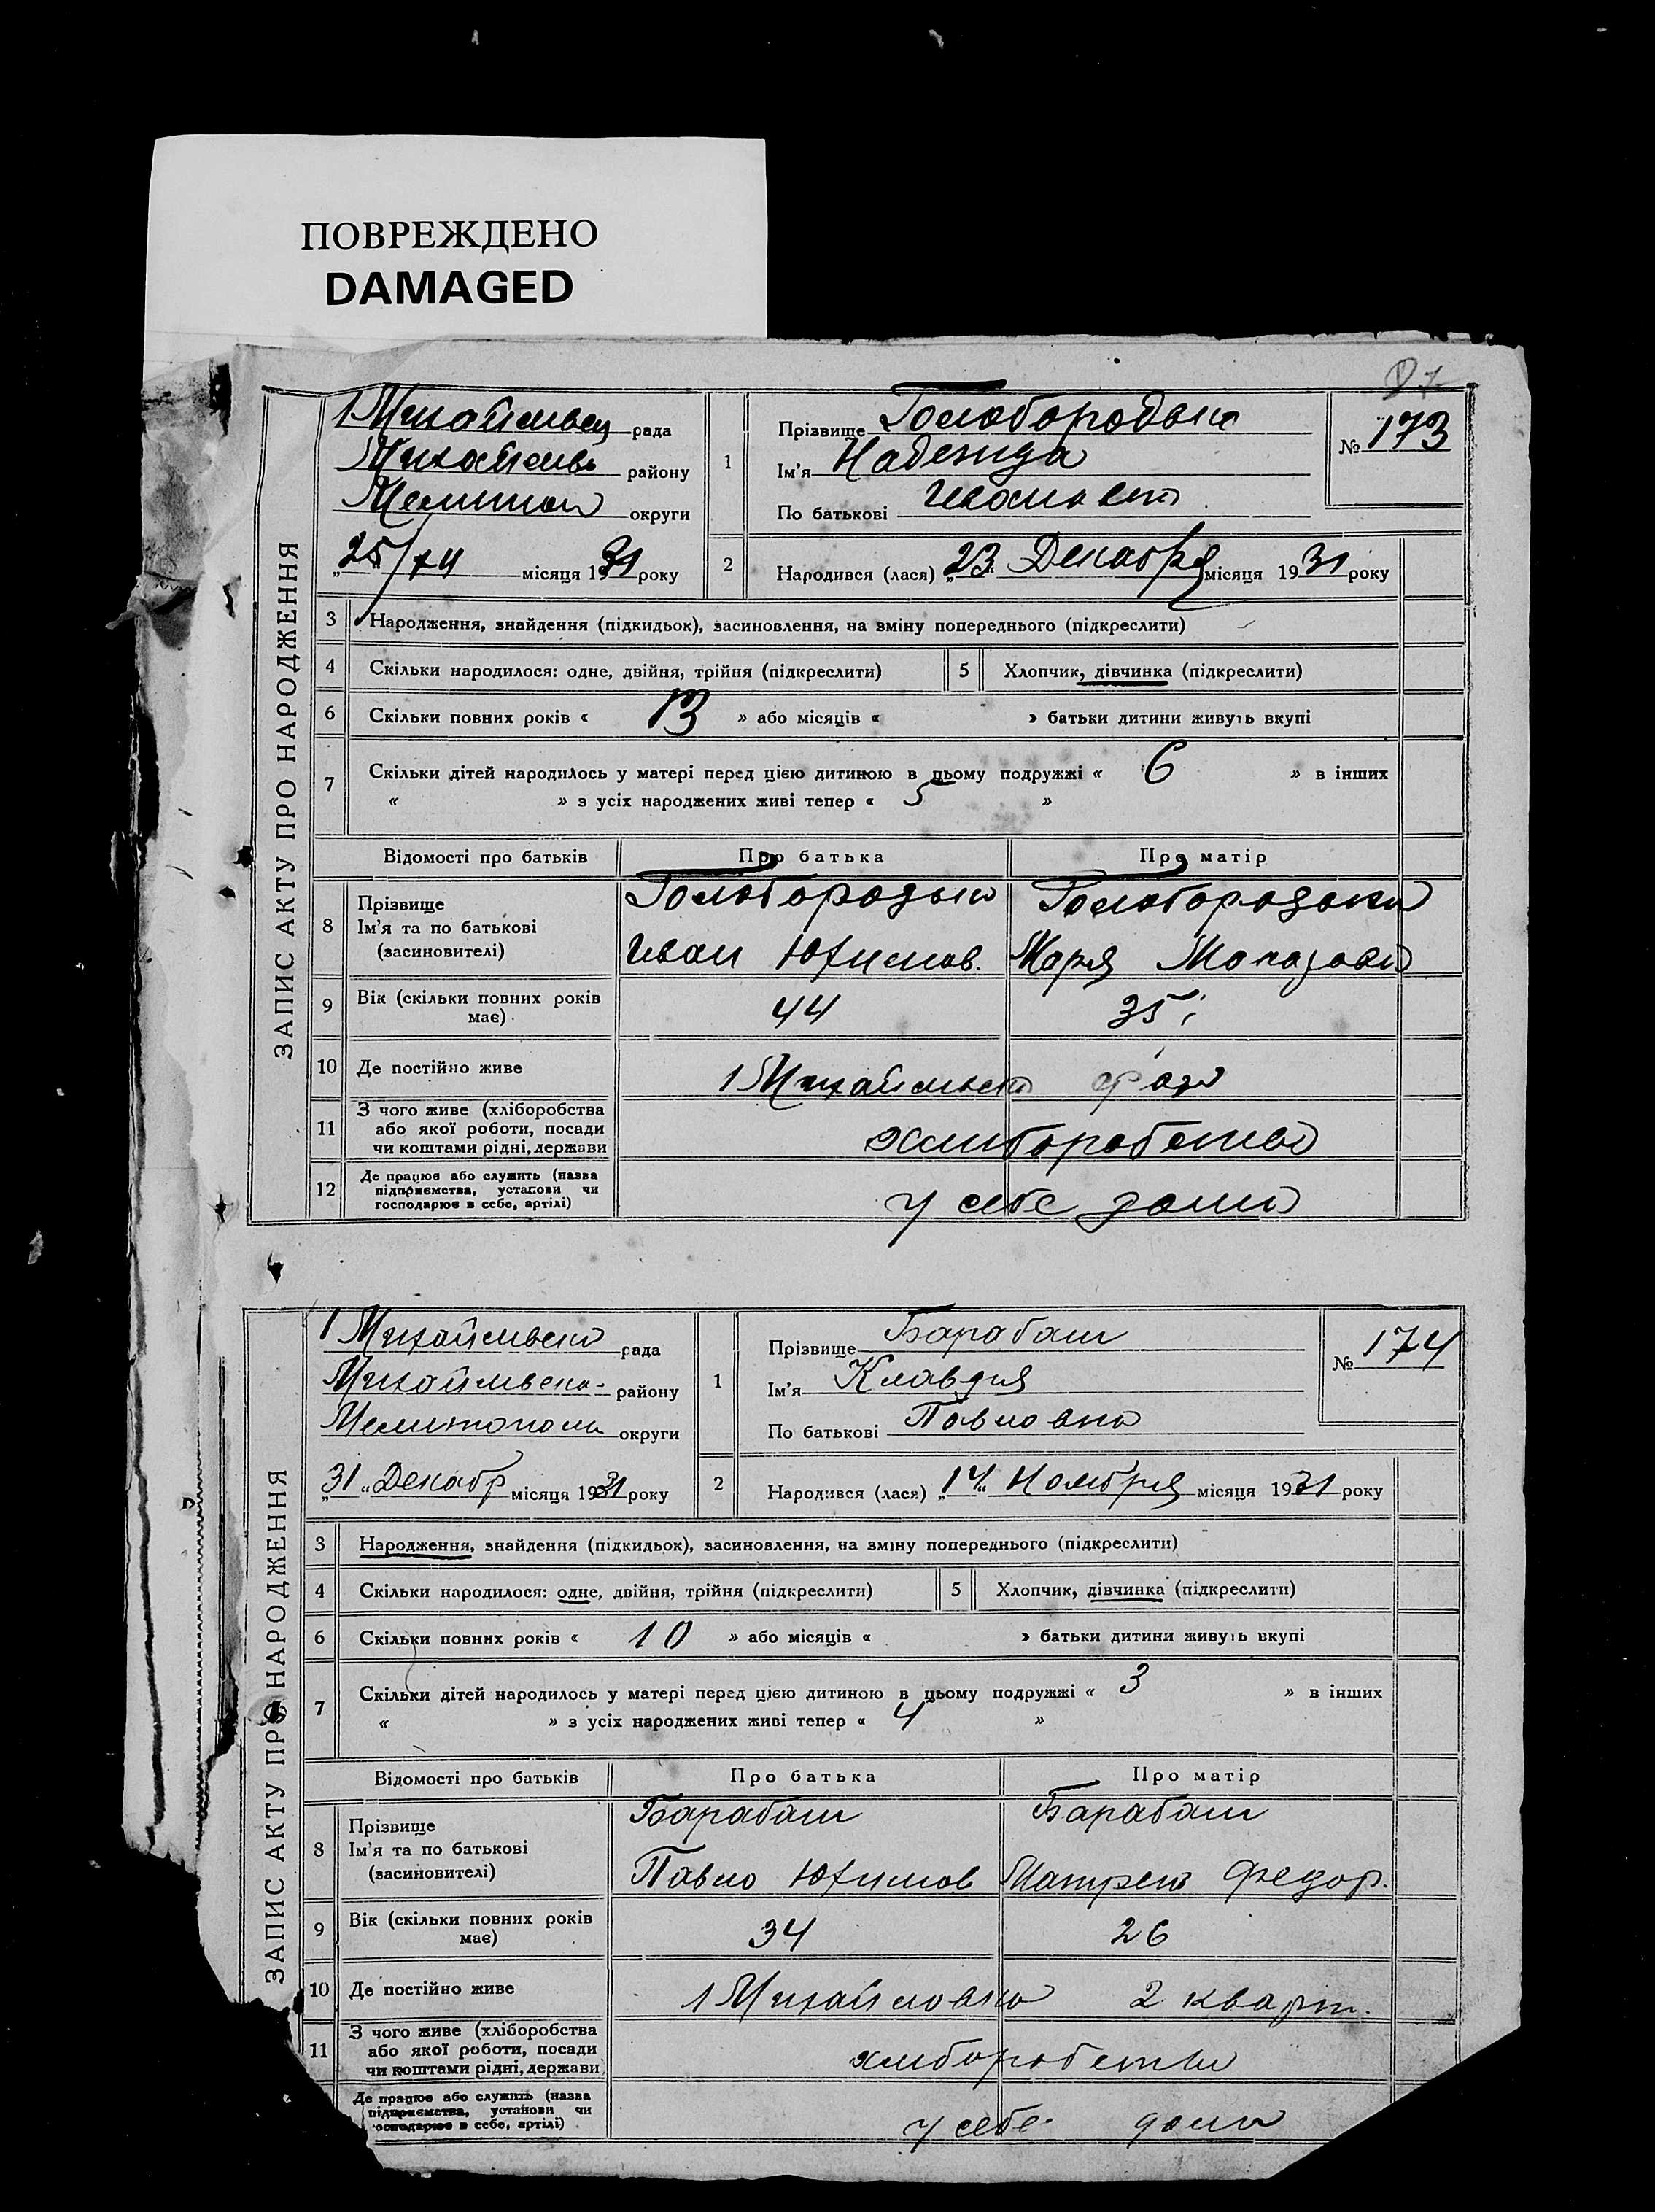 ПОВРЕЖДЕНО
DAMAGED
87
ЗАПИС АКТУ ПРО НАРОДЖЕННЯ
рада
району
округи
25/ місяця 1931 року
1
Прізвище Голобородько
Ім'я Надежда
По батькові
№ 173
2
Народився (лася) „23 Декабря місяця 1931 року
3 Народження, знайдення (підкидьок), засиновлення, на зміну попереднього (підкреслити)
4 Скільки народилося: одне, двійня, трійня (підкреслити)
5 Хлопчик, дівчинка (підкреслити)
6 Скільки повних років « 13 » або місяців « » батьки дитини живуть вкупі
7 Скільки дітей народилось у матері перед цією дитиною в цьому подружжі « 6 » в інших
« » з усіх народжених живі тепер « 5 »
Відомості про батьків Про батька Про матір
8 Прізвище
Ім'я та по батькові
(засиновителі)
Голобородько
Иван Юхимов.
Марія
9 Вік (скільки повних років
має)
44 35
10 Де постійно живе
1
11 З чого живе (хліборобства
або якої роботи, посади
чи коштами рідні, держави
хлиборобство
12 Де працює або служить (назва
підприємства, установи чи
господарює в себе, артілі)
у себе дома
ЗАПИС АКТУ ПРО НАРОДЖЕННЯ
1 рада
району
округи
„31“ Декабр місяця 1931 року
1
Прізвище Барабаш
Ім'я Клавдия
По батькові Павловна
№ 174
2
Народився (лася) „14“ Ноября місяця 1931 року
3 Народження, знайдення (підкидьок), засиновлення, на зміну попереднього (підкреслити)
4 Скільки народилося: одне, двійня, трійня (підкреслити)
5 Хлопчик, дівчинка (підкреслити)
6 Скільки повних років « 10 » або місяців « » батьки дитини живуть вкупі
7 Скільки дітей народилось у матері перед цією дитиною в цьому подружжі « 3 » в інших
« » з усіх народжених живі тепер « 4 »
Відомості про батьків Про батька Про матір
8 Прізвище
Ім'я та по батькові
(засиновителі)
Барабаш Барабаш
Павло Юхимов Матрена Федор.
9 Вік (скільки повних років
має)
34 26
10 Де постійно живе
1 Михайловка 2 кварт.
11 З чого живе (хліборобства
або якої роботи, посади
чи коштами рідні, держави
хлиборобство
Де працює або служить (назва
підприємства, установи чи
осподарює в себе, артілі)
у себе дома